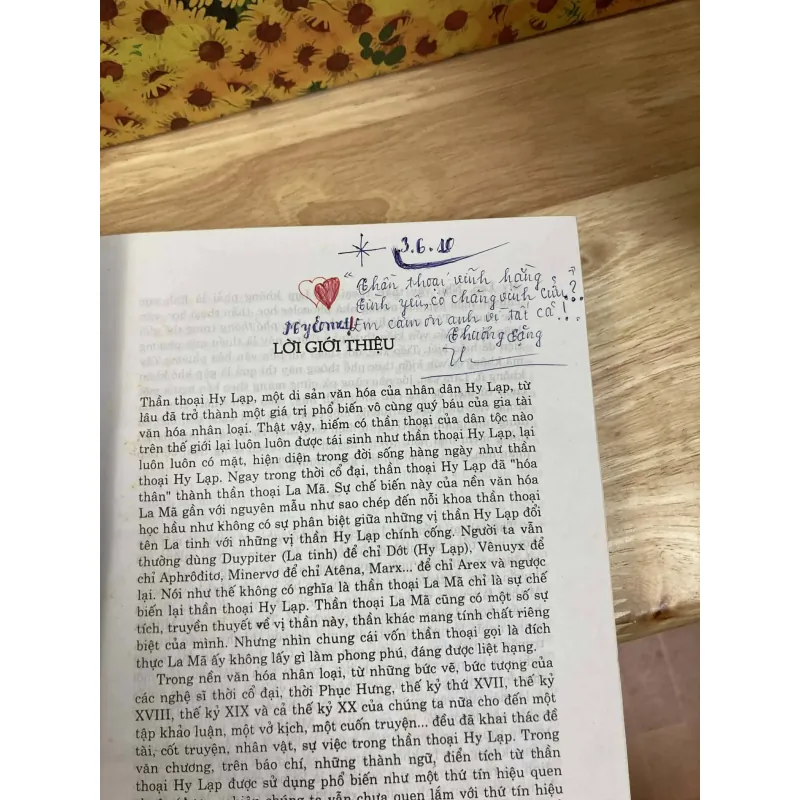 3.6.10
"Thần thoại vĩnh hằng
Tình yêu, có chăng vĩnh cửu..?
Em cảm ơn anh vì tất cả!..
Thương tặng
LỜI GIỚI THIỆU
Thần thoại Hy Lạp, một di sản văn hóa của nhân dân Hy Lạp, từ
lâu đã trở thành một giá trị phổ biến vô cùng quý báu của gia tài
văn hóa nhân loại. Thật vậy, hiếm có thần thoại của dân tộc nào
trên thế giới lại luôn luôn được tái sinh như thần thoại Hy Lạp, lại
luôn luôn có mặt, hiện diện trong đời sống hàng ngày như thần
thoại Hy Lạp. Ngay trong thời cổ đại, thần thoại Hy Lạp đã "hóa
thân" thành thần thoại La Mã. Sự chế biến này của nền văn hóa
La Mã gần với nguyên mẫu như sao chép đến nỗi khoa thần thoại
học hầu như không có sự phân biệt giữa những vị thần Hy Lạp đổi
tên La tinh với những vị thần Hy Lạp chính cống. Người ta vẫn
thường dùng Duypiter (La tinh) để chỉ Dớt (Hy Lạp), Vênuyx để
chỉ Aphrôditơ, Minervơ để chỉ Atêna, Marx... để chỉ Arex và ngược
lại. Nói như thế không có nghĩa là thần thoại La Mã chỉ là sự chế
biến lại thần thoại Hy Lạp. Thần thoại La Mã cũng có một số sự
tích, truyền thuyết về vị thần này, thần khác mang tính chất riêng
biệt của mình. Nhưng nhìn chung cái vốn thần thoại gọi là đích
thực La Mã ấy không lấy gì làm phong phú, đáng được liệt hạng.
Trong nền văn hóa nhân loại, từ những bức vẽ, bức tượng của
các nghệ sĩ thời cổ đại, thời Phục Hưng, thế kỷ thứ XVII, thế kỷ
XVIII, thế kỷ XIX và cả thế kỷ XX của chúng ta nữa cho đến một
tập khảo luận, một vở kịch, một cuốn truyện... đều đã khai thác đề
tài, cốt truyện, nhân vật, sự việc trong thần thoại Hy Lạp. Trong
văn chương, trên báo chí, những thành ngữ, điển tích từ thần
thoại Hy Lạp được sử dụng phổ biến như một thứ tín hiệu quen
chúng ta vẫn chưa quen lắm với thứ tín hiệu